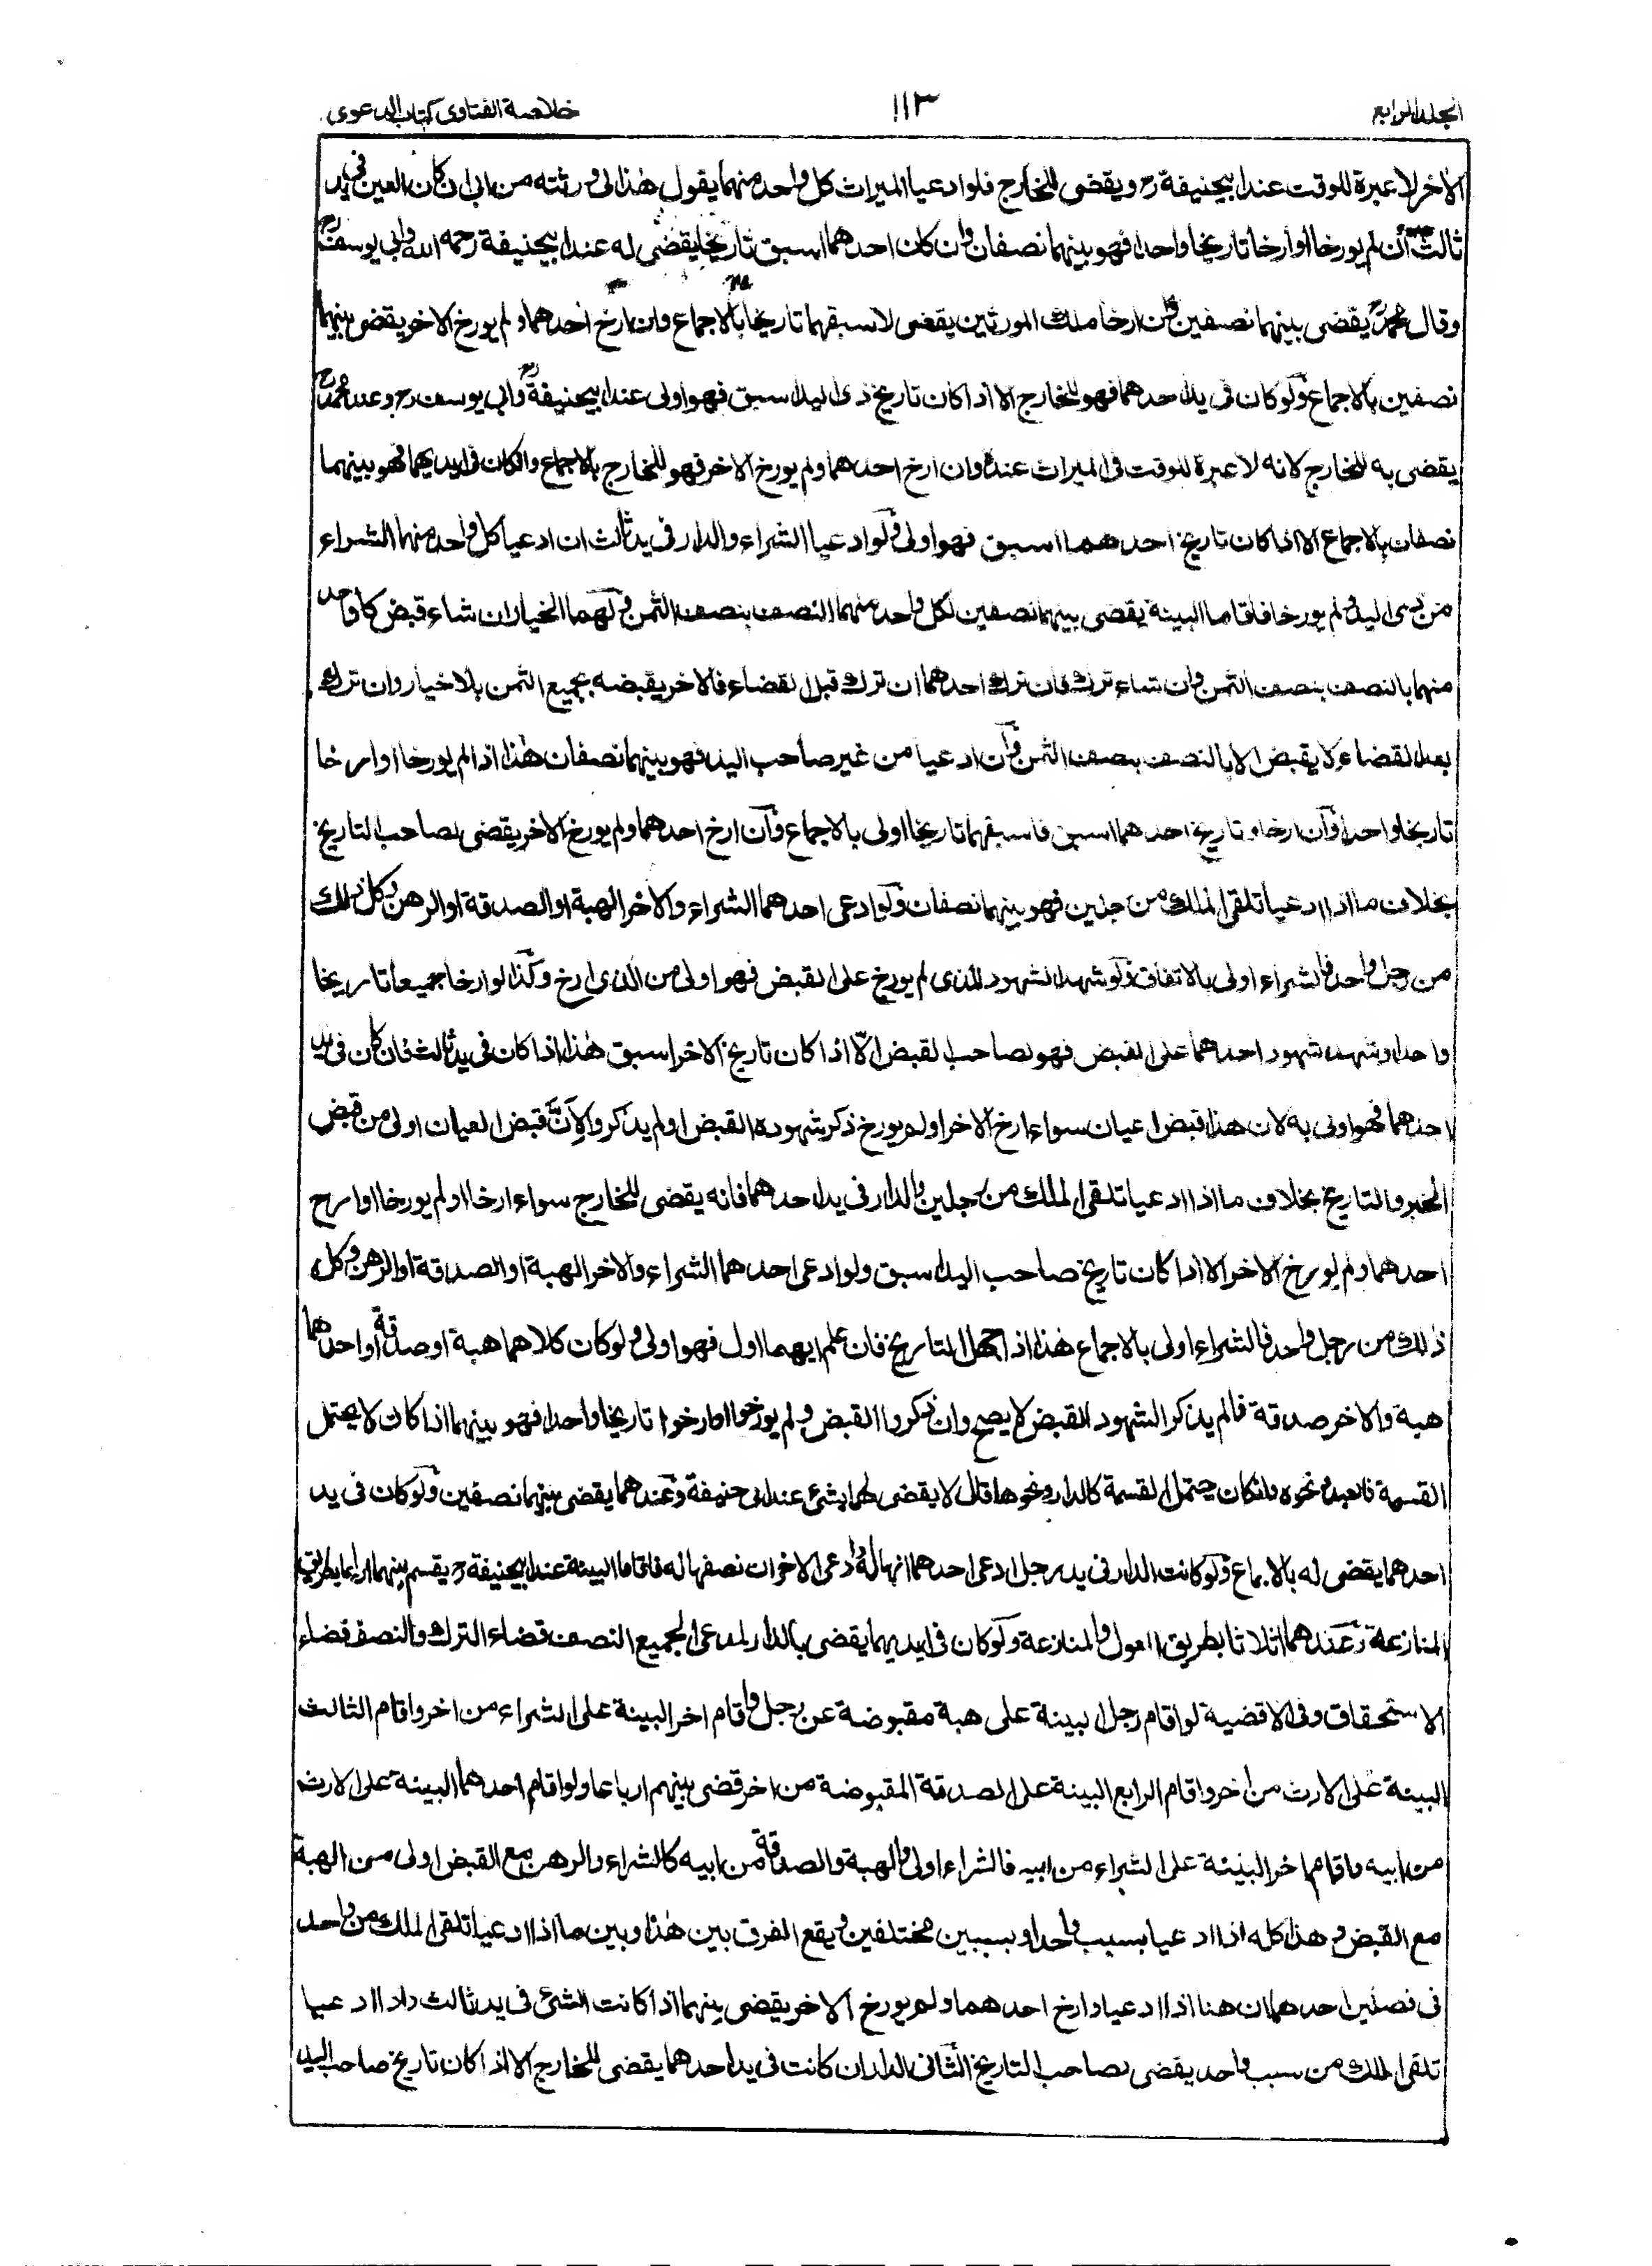 الجلد الرابع ١١٣ خلاصة الفتاوى كتاب الدعوى
الاخر لا عبرة للوقت عند ابيحنيفة رح ويقضى للخارج فلو ادعيا الميراث كل واحد منهما يقول هذا لى ورثته من ابى ان كان العين فى يد
ثالث ان لم يورخا او ارخا تاريخا واحدا فهو بينهما نصفان وان كان احدهما اسبق تاريخا يقضى له عند ابيحنيفة رحمه الله وابى يوسف رح
وقال محمد رح يقضى بينهما نصفين وان ارخا ملك المورثين يقضى لاسبقهما تاريخا بالاجماع وان ارخ احدهما ولم يورخ الاخر يقضى بينهما
نصفين بالاجماع ولو كان فى يد احدهما فهو للخارج الا اذا كان تاريخ ذى اليد اسبق فهو اولى عند ابيحنيفة رح وابي يوسف رح وعند محمد رح
يقضى به للخارج لانه لا عبرة للوقت فى الميراث عنده وان ارخ احدهما ولم يورخ الاخر فهو للخارج بالاجماع وان كان فى ايديهما فهو بينهما
نصفان بالاجماع الا اذا كان تاريخ احدهما اسبق فهو اولى ولو ادعيا الشراء والدار فى يد ثالث ان ادعيا كل واحد منهما الشراء
من ذى اليد ولم يورخا فاقاما البينة يقضى بينهما نصفين لكل واحد منهما النصف بنصف الثمن ولهما الخيار ان شاء قبض كل واحد
منهما بالنصف بنصف الثمن وان شاء ترك فان ترك احدهما ان ترك قبل القضاء فالاخر يقبضه بجميع الثمن بلا خيار وان ترك
بعد القضاء لا يقبض الا بالنصف بنصف الثمن وان ادعيا من غير صاحب اليد فهو بينهما نصفان هذا اذا لم يورخا او ارخا
تاريخا واحدا وان ارخا وتاريخ احدهما اسبق فاسبقهما تاريخا اولى بالاجماع وان ارخ احدهما ولم يورخ الاخر يقضى لصاحب التاريخ
بخلاف ما اذا ادعيا تلقى الملك من رجلين فهو بينهما نصفان ولو ادعى احدهما الشراء والاخر الهبة او الصدقة او الرهن وكل ذلك
من رجل واحد فالشراء اولى بالاتفاق ولو شهد الشهود للذى لم يورخ على القبض فهو اولى من الذى ارخ وكذا لو ارخا جميعا تاريخا
واحدا وشهد شهود احدهما على القبض فهو لصاحب القبض الا اذا كان تاريخ الاخر اسبق هذا اذا كان فى يد ثالث فان كان فى يد
احدهما فهو اولى به لان هذا قبض اعيان سواء ارخ الاخر او لم يورخ ذكر شهوده القبض او لم يذكروا لان قبض العيان اولى من قبض
الخبر والتاريخ بخلاف ما اذا ادعيا تلقى الملك من رجلين والدار فى يد احدهما فانه يقضى للخارج سواء ارخا او لم يورخا او ارخ
احدهما ولم يورخ الاخر الا اذا كان تاريخ صاحب اليد اسبق ولو ادعى احدهما الشراء والاخر الهبة او الصدقة او الرهن وكل
ذلك من رجل واحد فالشراء اولى بالاجماع هذا اذا جهل التاريخ فان علم ايهما اول فهو اولى ولو كان كلاهما هبة او صدقة او احدهما
هبة والاخر صدقة فالم يذكر الشهود القبض لا يصح وان ذكروا القبض ولم يورخوا او ارخوا تاريخا واحدا فهو بينهما اذا كان لا يحتمل
القسمة كالعبد ونحوه وان كان يحتمل القسمة كالدار ونحوها قال لا يقضى لهما بشئ عند ابى حنيفة وعندهما يقضى بينهما نصفين ولو كان فى يد
احدهما يقضى له بالاجماع ولو كانت الدار فى يد رجل ادعى احدهما انها له وادعى الاخر ان نصفها له فاقاما البينة عند ابيحنيفة رح يقسم بينهما ارباعا بطريق
المنازعة وعندهما اثلاثا بطريق العول والمنازعة ولو كان فى ايديهما يقضى بالدار لمدعى الجميع النصف قضاء الترك والنصف قضاء
الاستحقاق وفى الاقضية لو اقام رجل البينة على هبة مقبوضة عن رجل واقام اخر البينة على الشراء من اخر واقام الثالث
البينة على الارث من اخر واقام الرابع البينة على الصدقة المقبوضة من اخر قضى بينهم ارباعا ولو اقام احدهما البينة على الارث
من ابيه واقام اخر البينة على الشراء من ابيه فالشراء اولى والهبة والصدقة من ابيه كالشراء والرهن مع القبض اولى من الهبة
مع القبض وهذا كله اذا ادعيا بسبب واحد او بسببين مختلفين ويقع الفرق بين هذا وبين ما اذا ادعيا تلقى الملك من واحد
فى فصلين احدهما ان هنا اذا ادعيا وارخ احدهما ولم يورخ الاخر يقضى بينهما اذا كانت الشئ فى يد ثالث واذا ادعيا
تلقى الملك من سبب واحد يقضى لصاحب التاريخ الثانى الدار ان كانت فى يد احدهما يقضى للخارج الا اذا كان تاريخ صاحب اليد